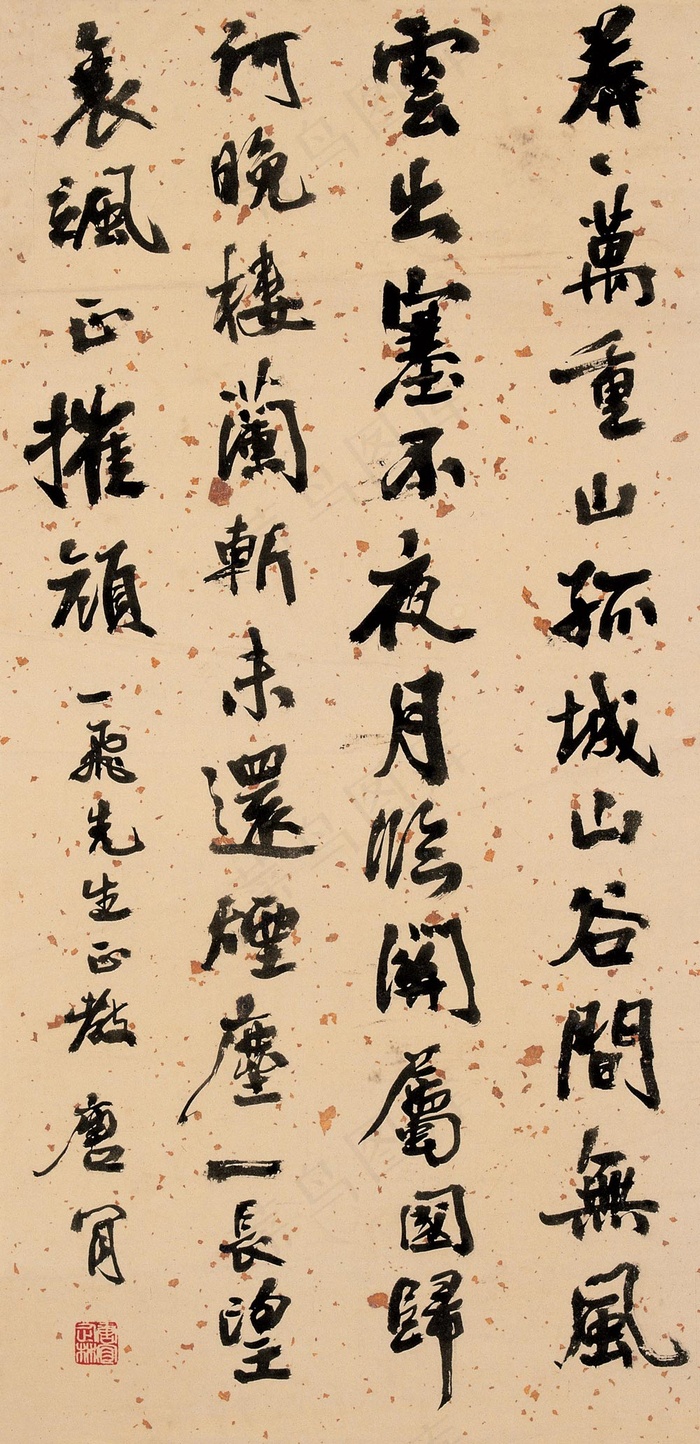 莽〻萬重山孤城山谷間無風
雲出塞不夜月臨關屬國歸
何晚樓蘭斬未還煙塵一長望
衰颯正摧顏
一飛先生正教 唐肎